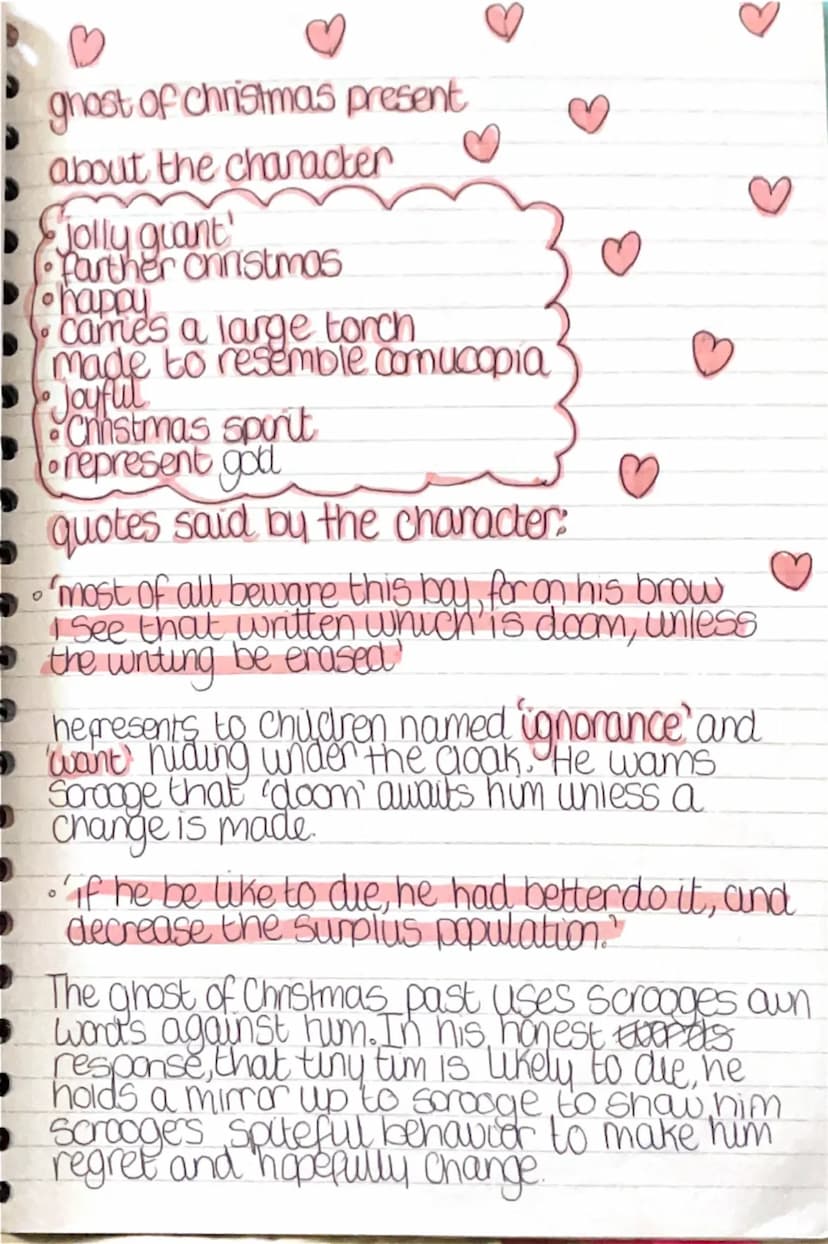 ghost of christmas present
about the character
• 'jolly giant'
• farther christmas
• happy
• carries a large torch
made to resemble cornucopia
• joyful
• Christmas spirit
• represent god
quotes said by the character:
• 'most of all beware this boy, for on his brow
I see that written which is doom, unless
the writing be erased'
represents to children named 'ignorance' and
'want' hiding under the cloak. He warns
Scrooge that 'doom' awaits him unless a
change is made.
• 'if he be like to die, he had better do it, and
decrease the surplus population.'
The ghost of Christmas past uses scrooges own
words against him. In his honest words
response, that tiny tim is likely to die, he
holds a mirror up to scrooge to show him
scrooges spiteful behavior to make him
regret and hopefully change.